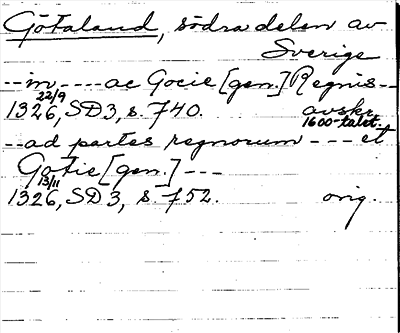 Götaland, södra delen av
Sverige
--in ---- ac Gocie [gen.] Regnis--
22/9
1326, SD 3, s. 740. avskr.
1600-talet.
--ad partes regnorum --- et
Gotie [gen.] ---
13/11
1326, SD 3, s. 752. orig.